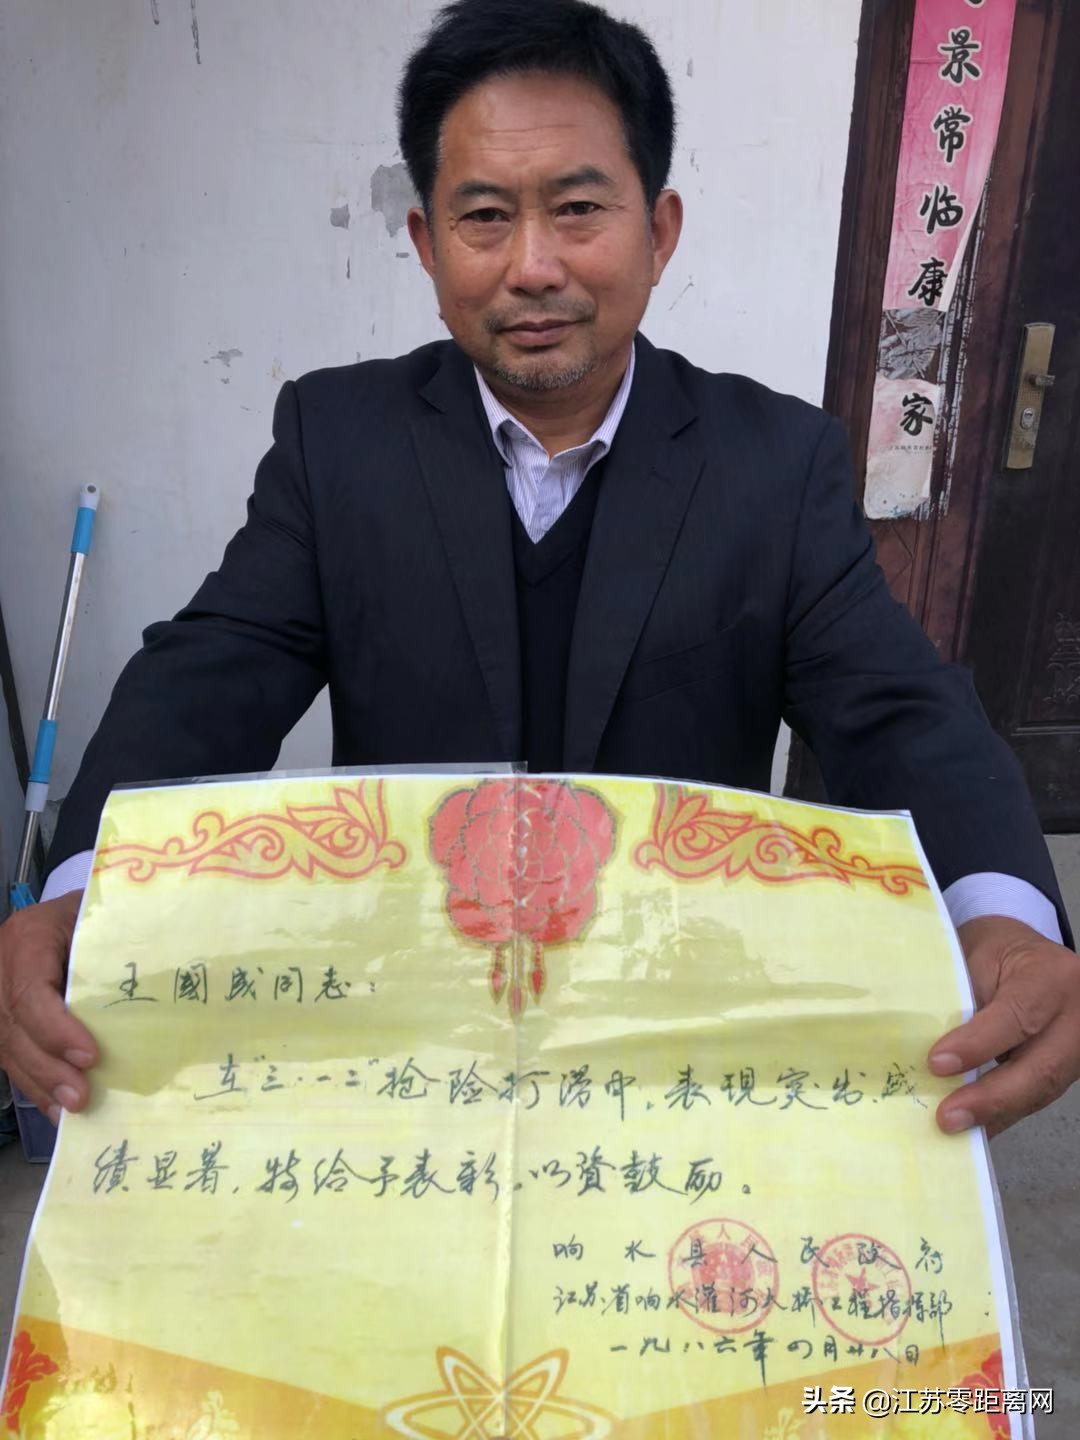 景常临康
家
王國成同志：
在"三·一二"抢险打捞中，表现突出，成
绩显著，特给予表彰，以资鼓励。
响水县人民政府
江苏省响水灌河大桥工程指挥部
一九八六年四月廿八日
头条 @江苏零距离网